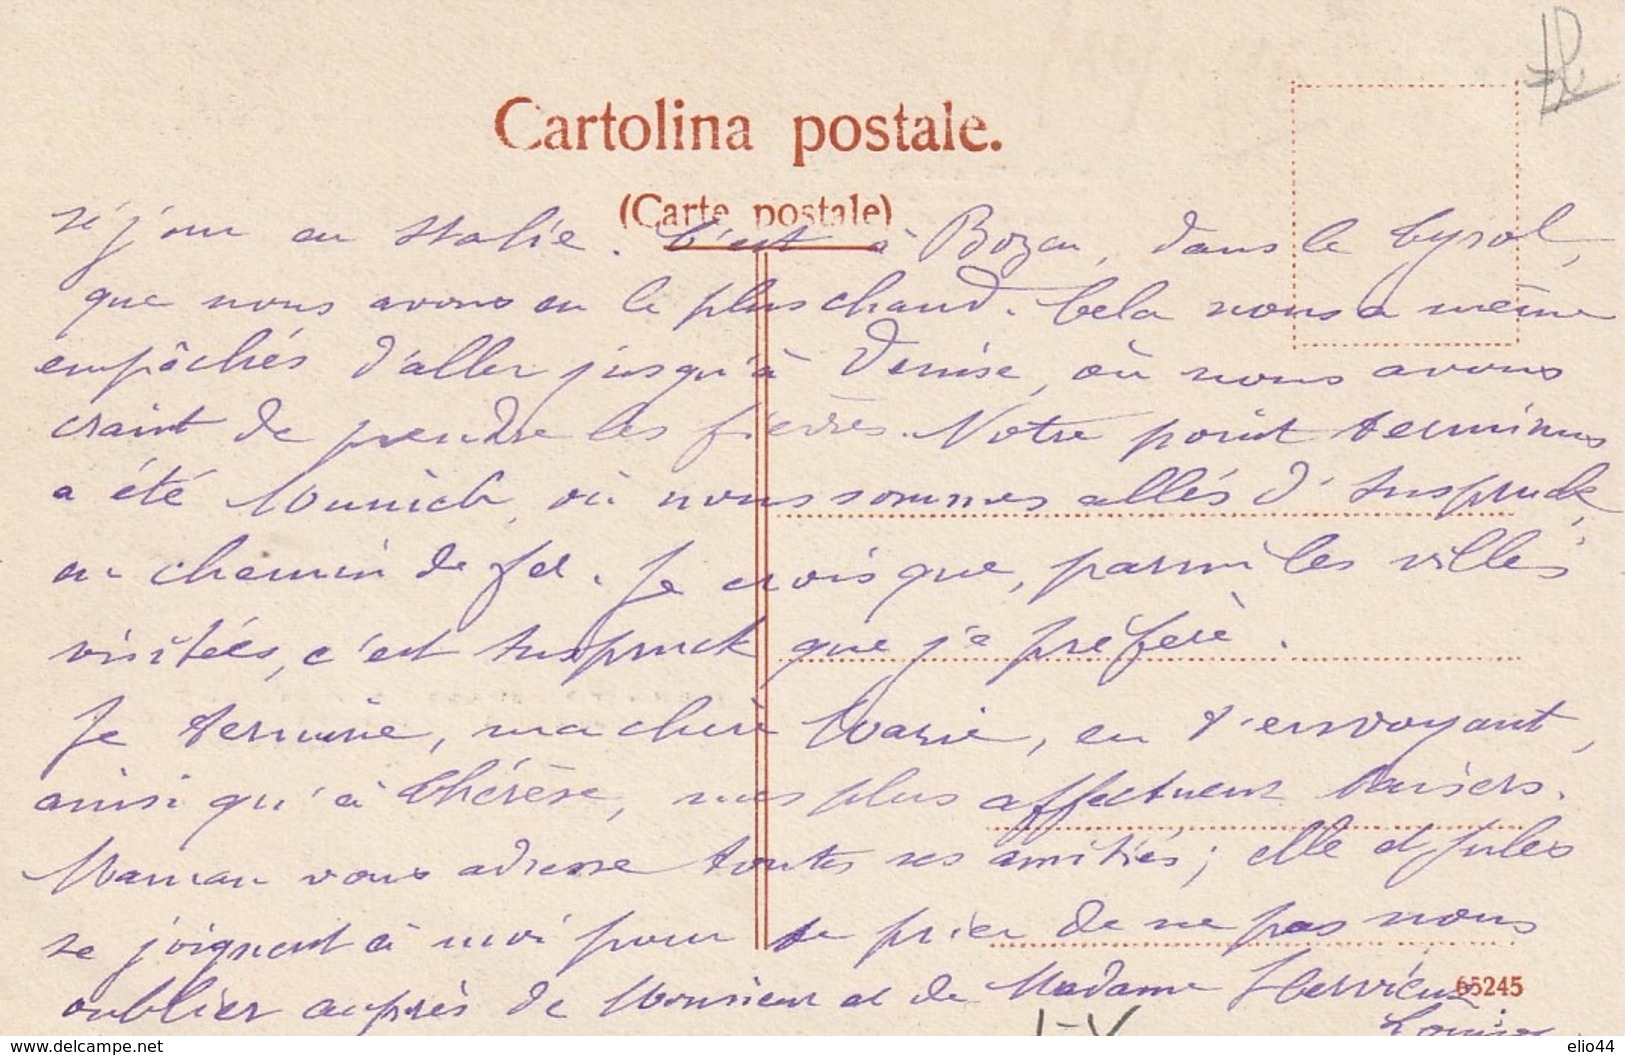 Cartolina postale.
(Carte postale)
séjour en Italie. C'est à Bozen, dans le Tyrol,
que nous avons eu le plus chaud. Cela nous a même
empêchés d'aller jusqu'à Venise, où nous avons
craint de prendre les fièvres. Notre point terminus
a été Munich, où nous sommes allés d'Inspruck,
en chemin de fer. Je crois que, parmi les villes
visitées, c'est Inspruck que je préfère.
Je termine, ma chère Marie, en t'envoyant,
ainsi qu'à Thérèse, mes plus affectueux baisers.
Maman vous adresse toutes ses amitiés; elle et Jules
se joignent à moi pour te prier de ne pas nous
oublier auprès de Monsieur et de Madame Hervieux
65245
Louise.
I-V
www.delcampe.net
elio44